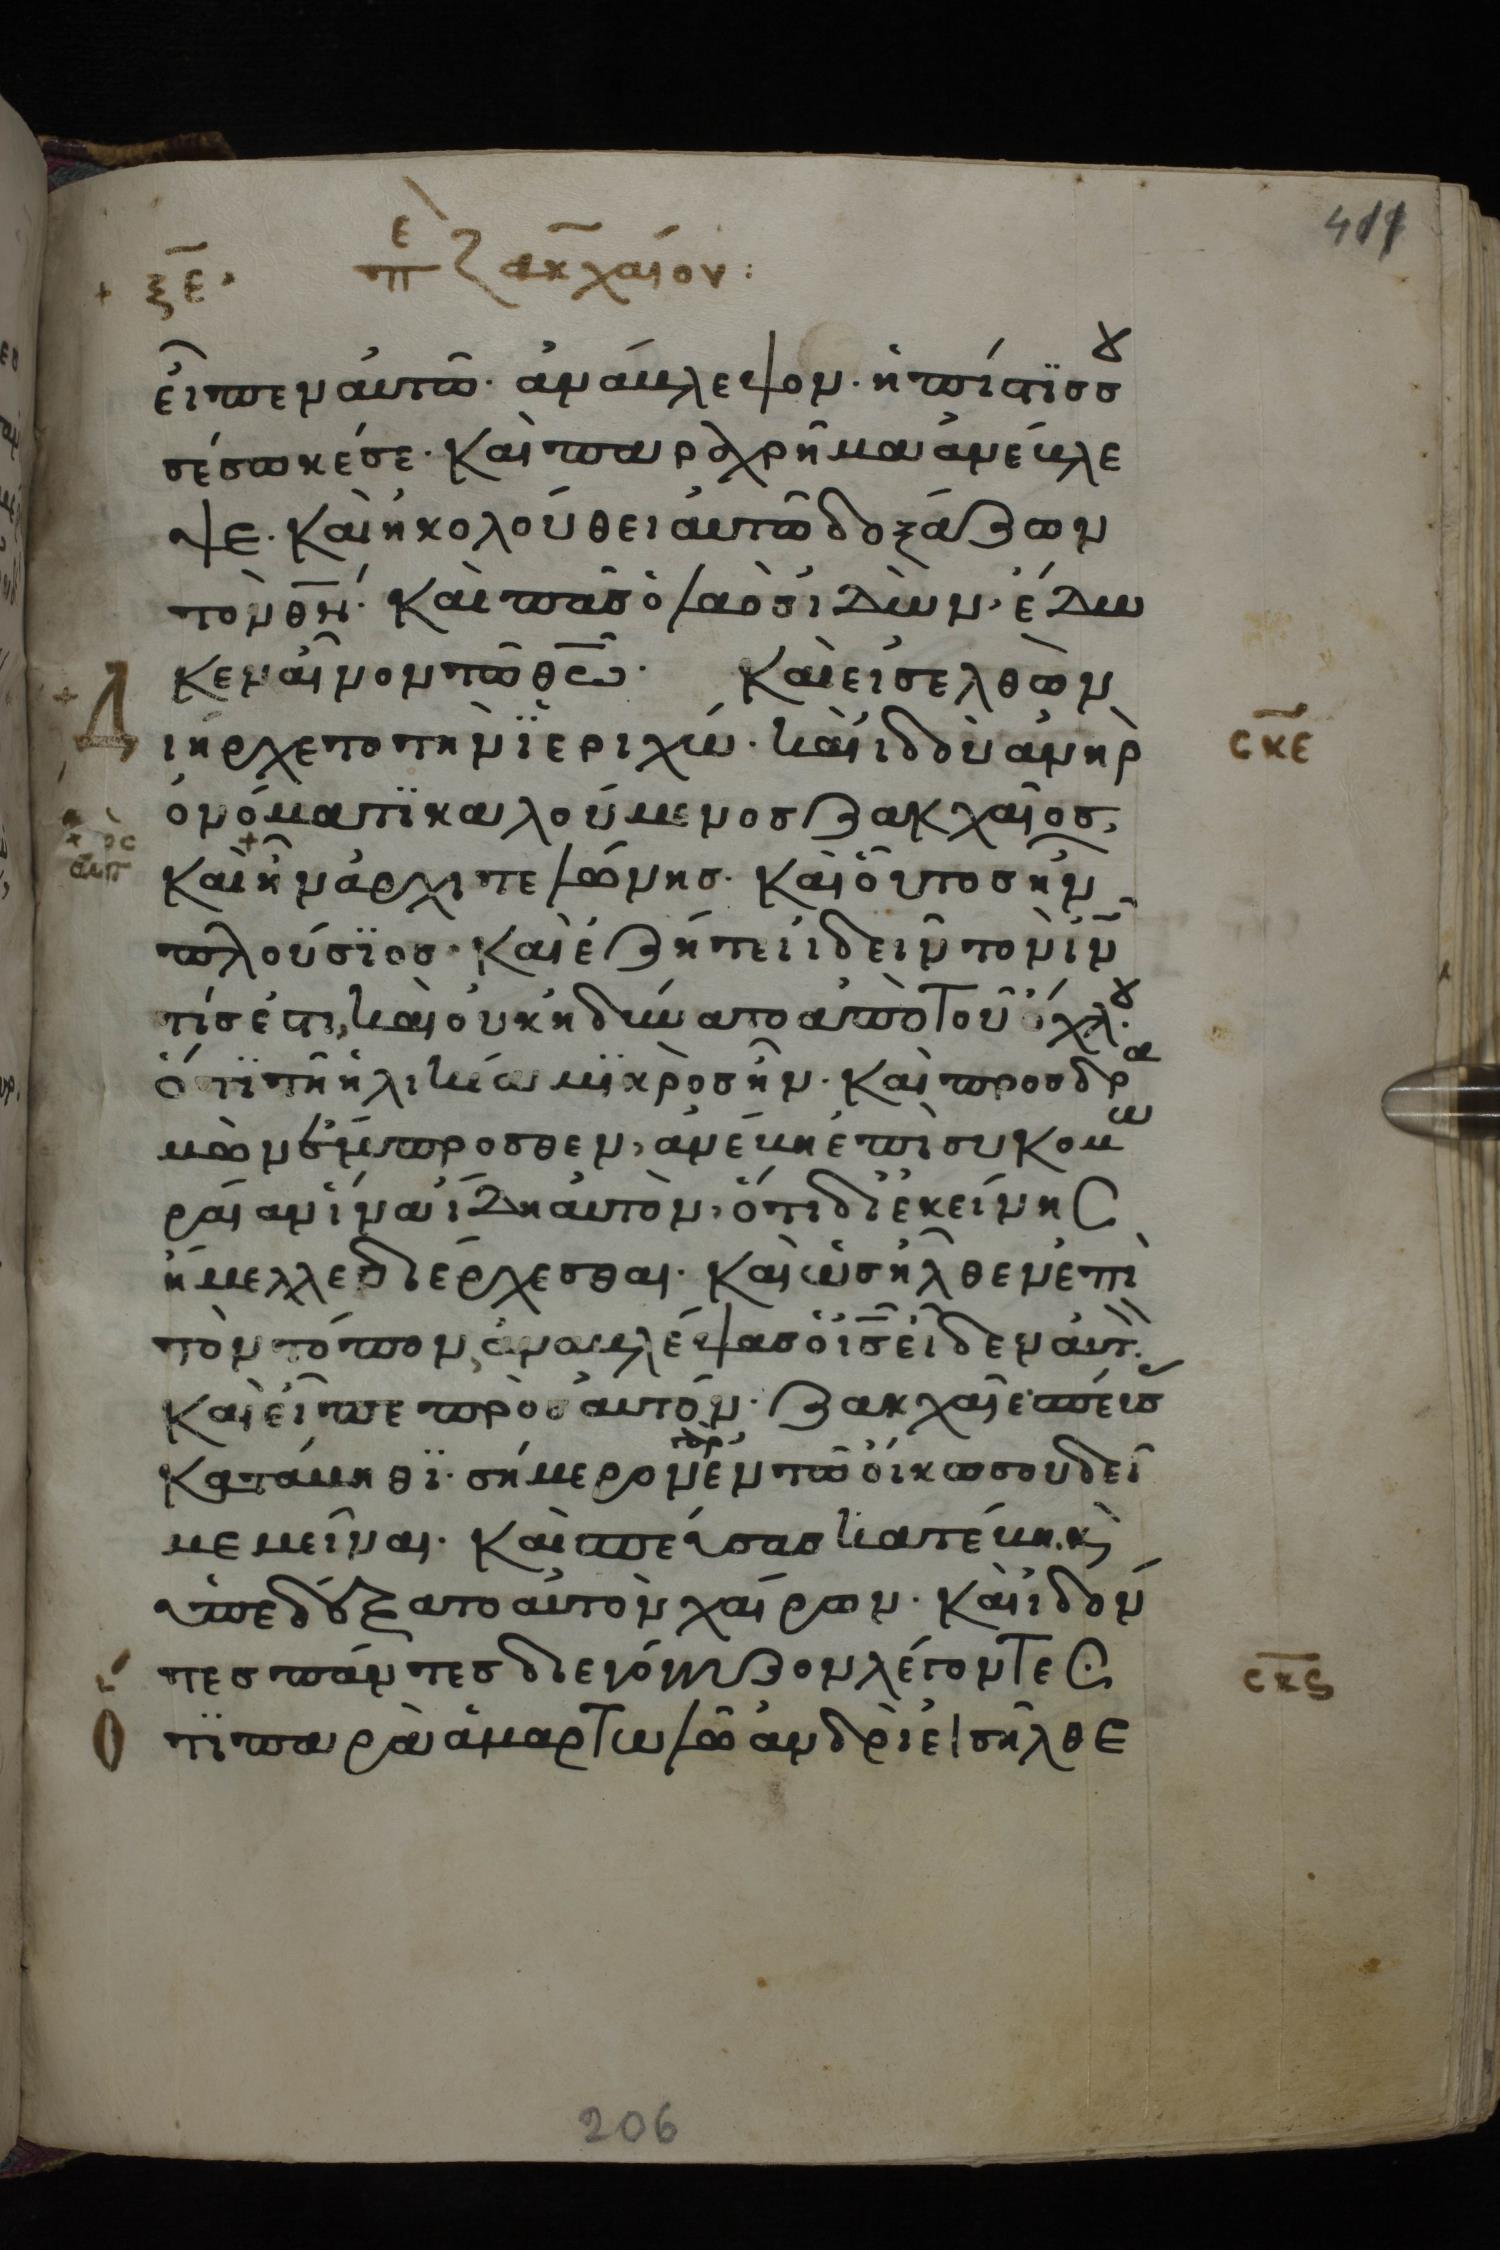 411
+ ξε· πε ζακχαίον:
εἶπεν αὐτῶ· ἀνάβλεψον· ἡ πίστϊς σου
σέσωκέ σε· καὶ παραχρῆμα ἀνέβλε
ψε· καὶ ἠκολούθει αὐτῶ δοξάζων
τὸν θν· καὶ πᾶς ὁ λαὸς ἰδὼν, ἔδω
κεν αἶνον τῶ θω· καὶ εἰσελθὼν
Διήρχετο τὴν ϊεριχώ· καὶ ἰδοὺ ἀνὴρ
σκε
ὀνόματϊ καλούμενος ζακχαῖος,
καὶ ἦν ἀρχιτελώνης· καὶ οὗτος ἦν
πλούσϊος· καὶ ἐζήτει ἰδεῖν τὸν ιν
τίς ἐστι, καὶ οὐκ ἠδύνατο ἀπὸ τοῦ ὄχλου·
ὅτϊ τῆ ἡλικία μϊκρὸς ἦν· καὶ προσδρα
μὼν ἔμπροσθεν, ἀνέβη ἐπὶ συκομω
ραίαν ἵνα ἴδη αὐτὸν, ὅτι δι ἐκείνης
ἤμελλε διέρχεσθαι· καὶ ὡς ἦλθεν ἐπὶ
τὸν τόπον, ἀναβλέψας ὁ ις εἶδεν αὐτ
καὶ εἶπε πρὸς αὐτὸν· ζακχαῖε σπεύσ
κατάβηθϊ· σήμερον γὰρ ἐν τῶ οἴκω σου δεῖ
με μεῖναι· καὶ σπεύσας κατέβη, κ
ὑπεδέξατο αὐτὸν χαίρων· καὶ ἰδόν
τες πάντες διεγόγγυζον λέγοντες·
σκς
Ὅτϊ παρὰ ἁμαρτωλῶ ἀνδρὶ εἰσῆλθε
206